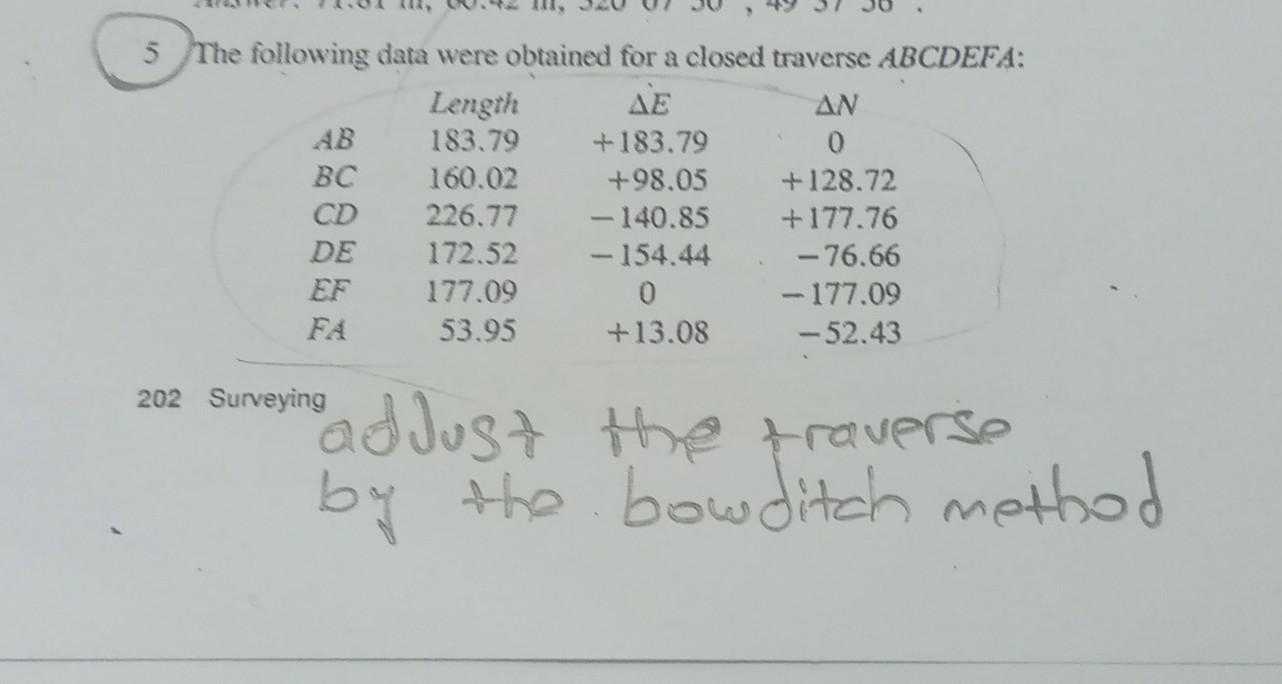 5 The following data were obtained for a closed traverse ABCDEFA:
Length ΔE ΔN
AB 183.79 +183.79 0
BC 160.02 +98.05 +128.72
CD 226.77 −140.85 +177.76
DE 172.52 −154.44 −76.66
EF 177.09 0 −177.09
FA 53.95 +13.08 −52.43
202 Surveying
adjust the traverse
by the bowditch method